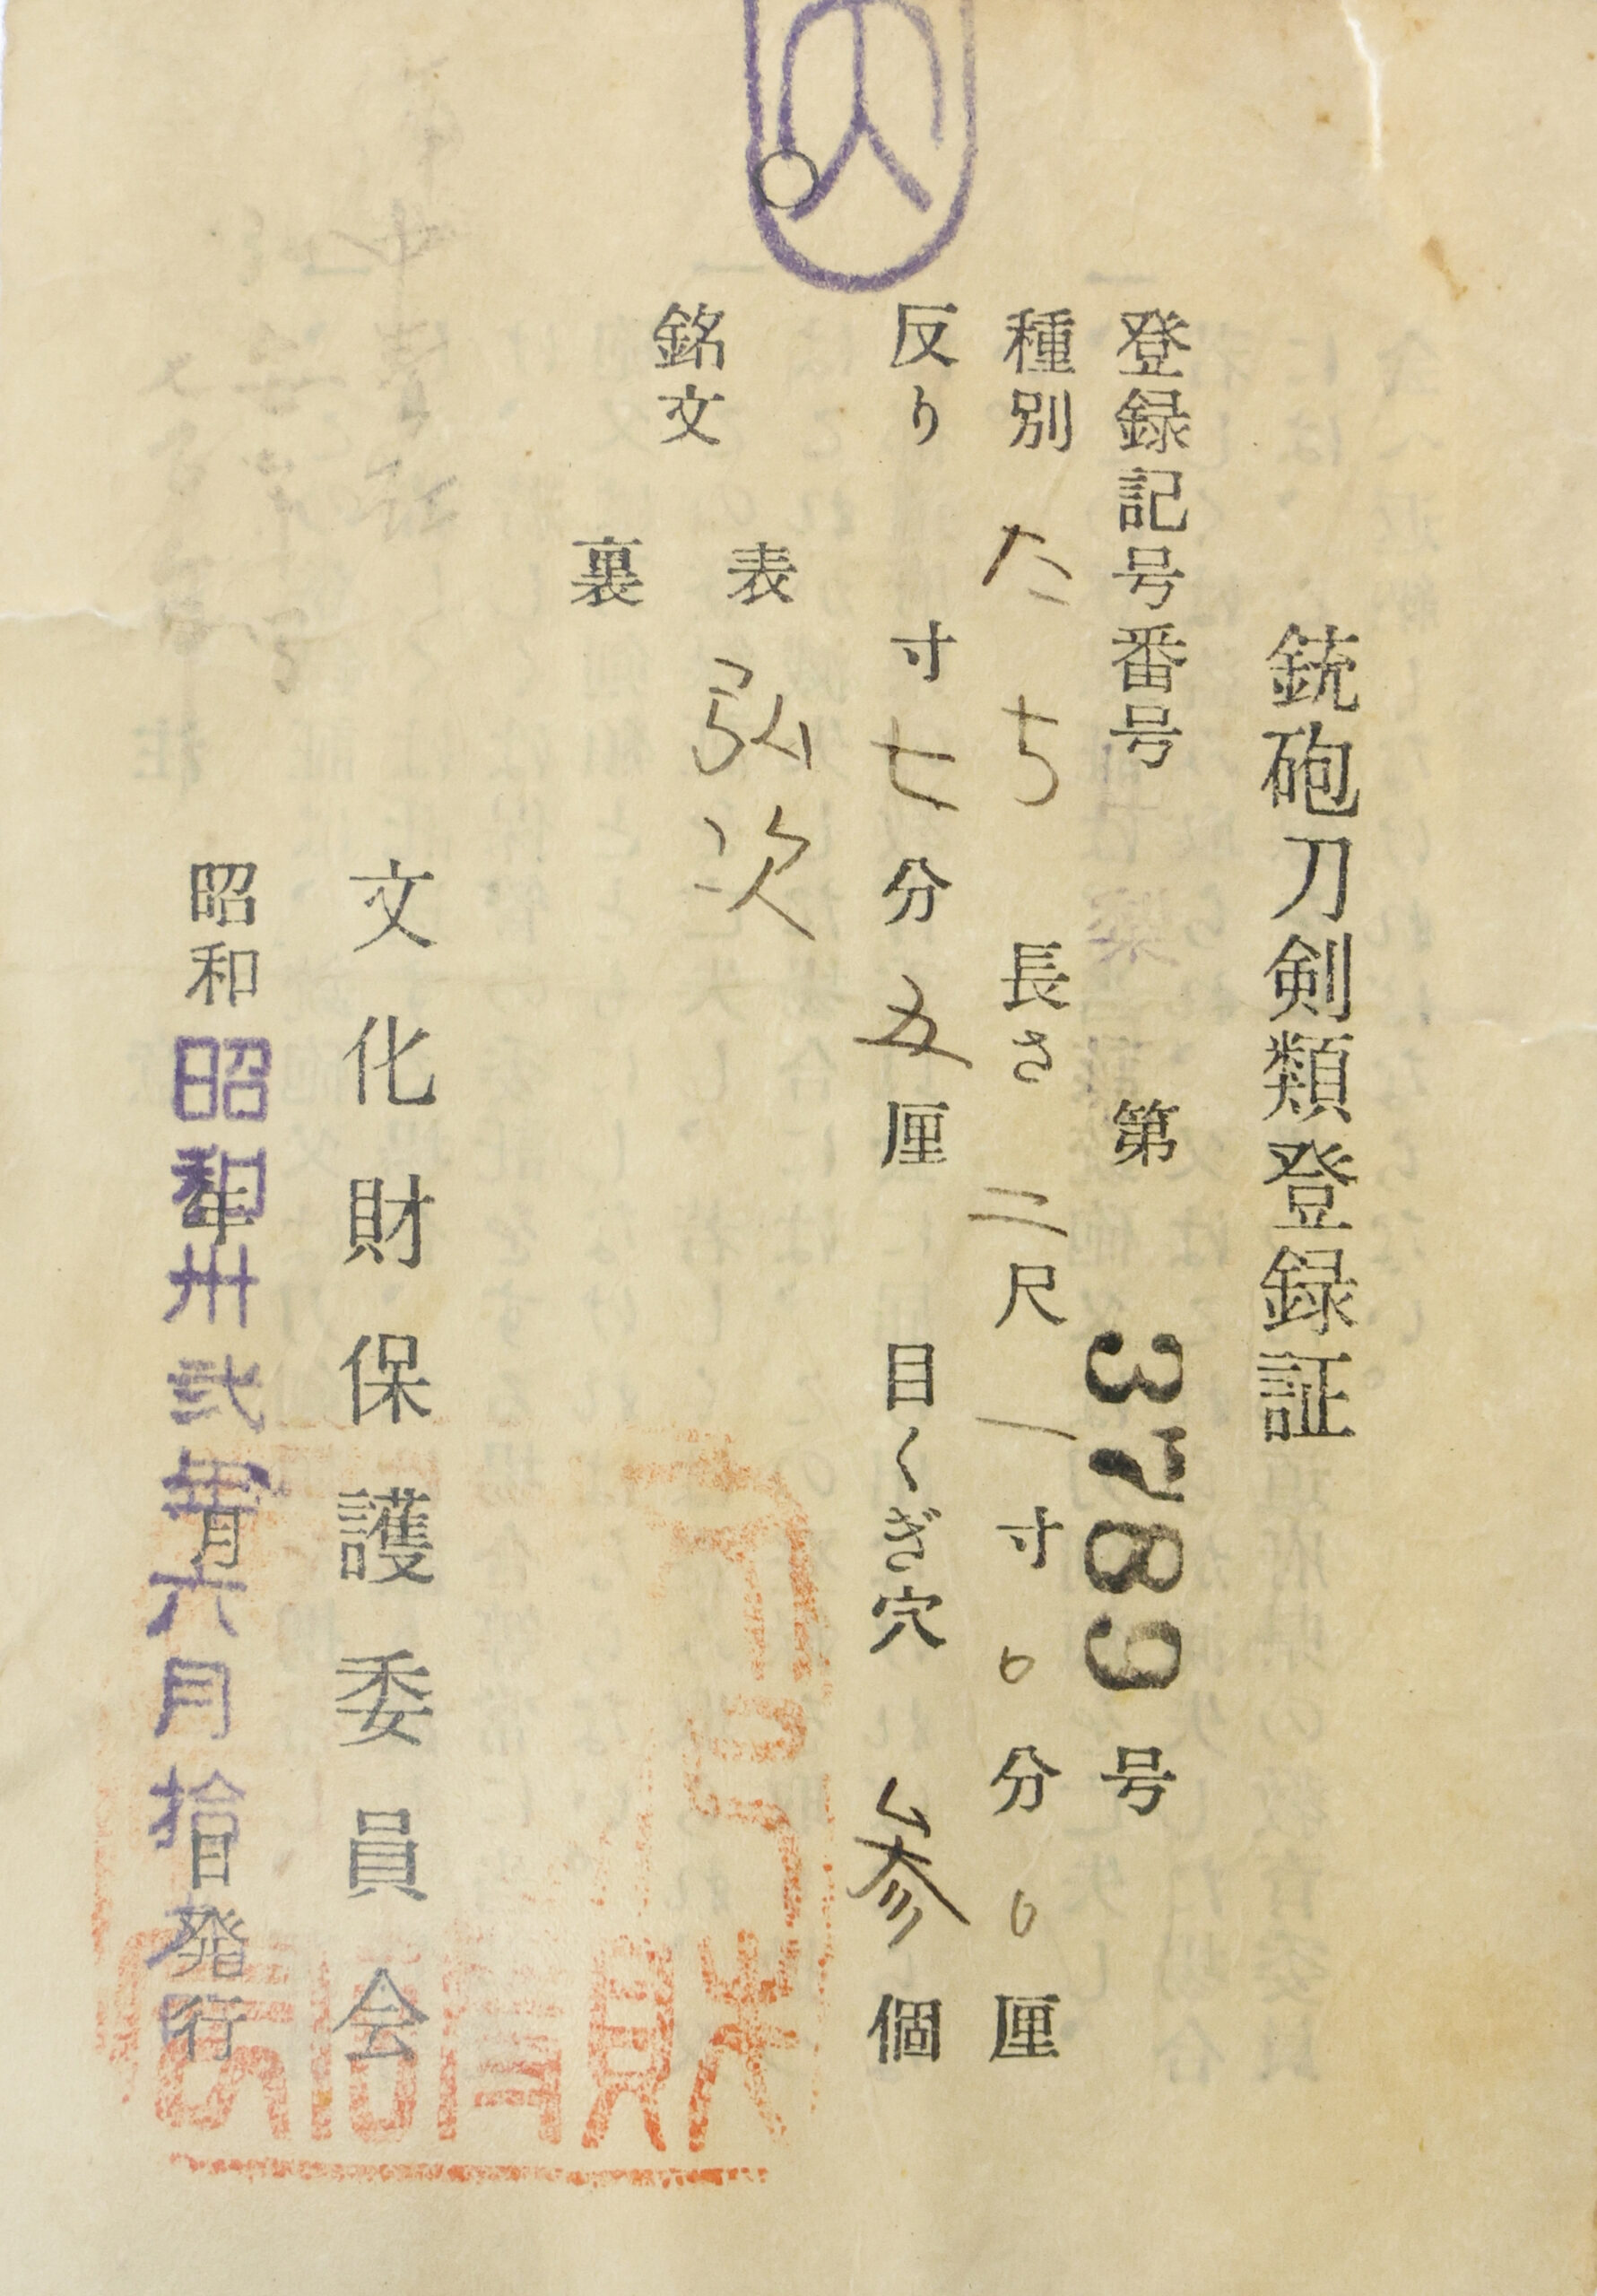 銃砲刀剣類登録証
登録記号番号 第 3789 号
種別 たち 長さ 二尺一寸〇分〇厘
反り 寸七分五厘 目くぎ穴 参個
銘文
表 弘次
裏
文化財保護委員会
昭和 年 月 日発行
昭和卅弐年六月拾